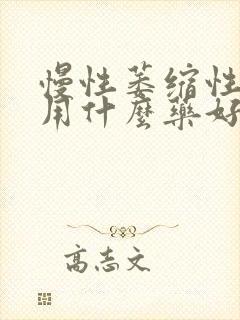 慢性萎缩性
用什麼藥好
高志文